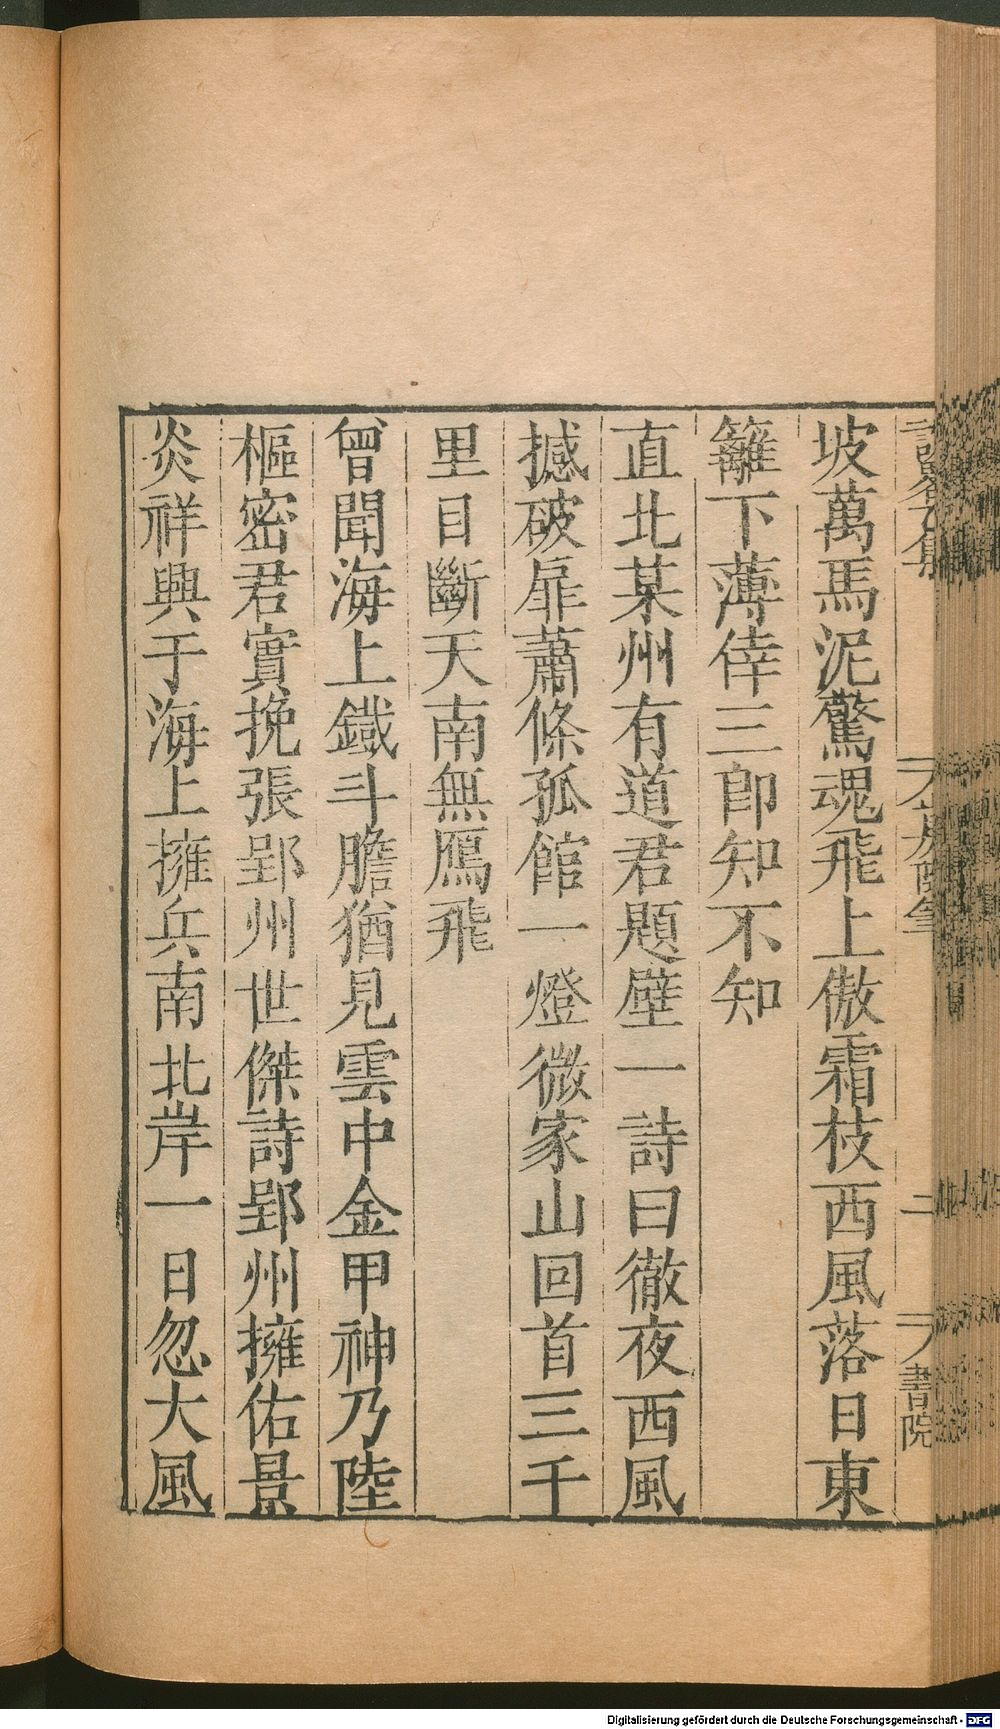 坡萬馬泥驚魂飛上傲霜枝西風落日東
籬下薄倖三郎知不知
直北某州有道君題壁一詩曰徹夜西風
撼破扉蕭條孤館一燈微家山回首三千
里目斷天南無鴈飛
曾聞海上鐵斗膽猶見雲中金甲神乃陸
樞密君實挽張郢州世傑詩郢州擁佑景
炎祥興于海上擁兵南北岸一日忽大風
二
書院
Digitalisierung gefördert durch die Deutsche Forschungsgemeinschaft - DFG